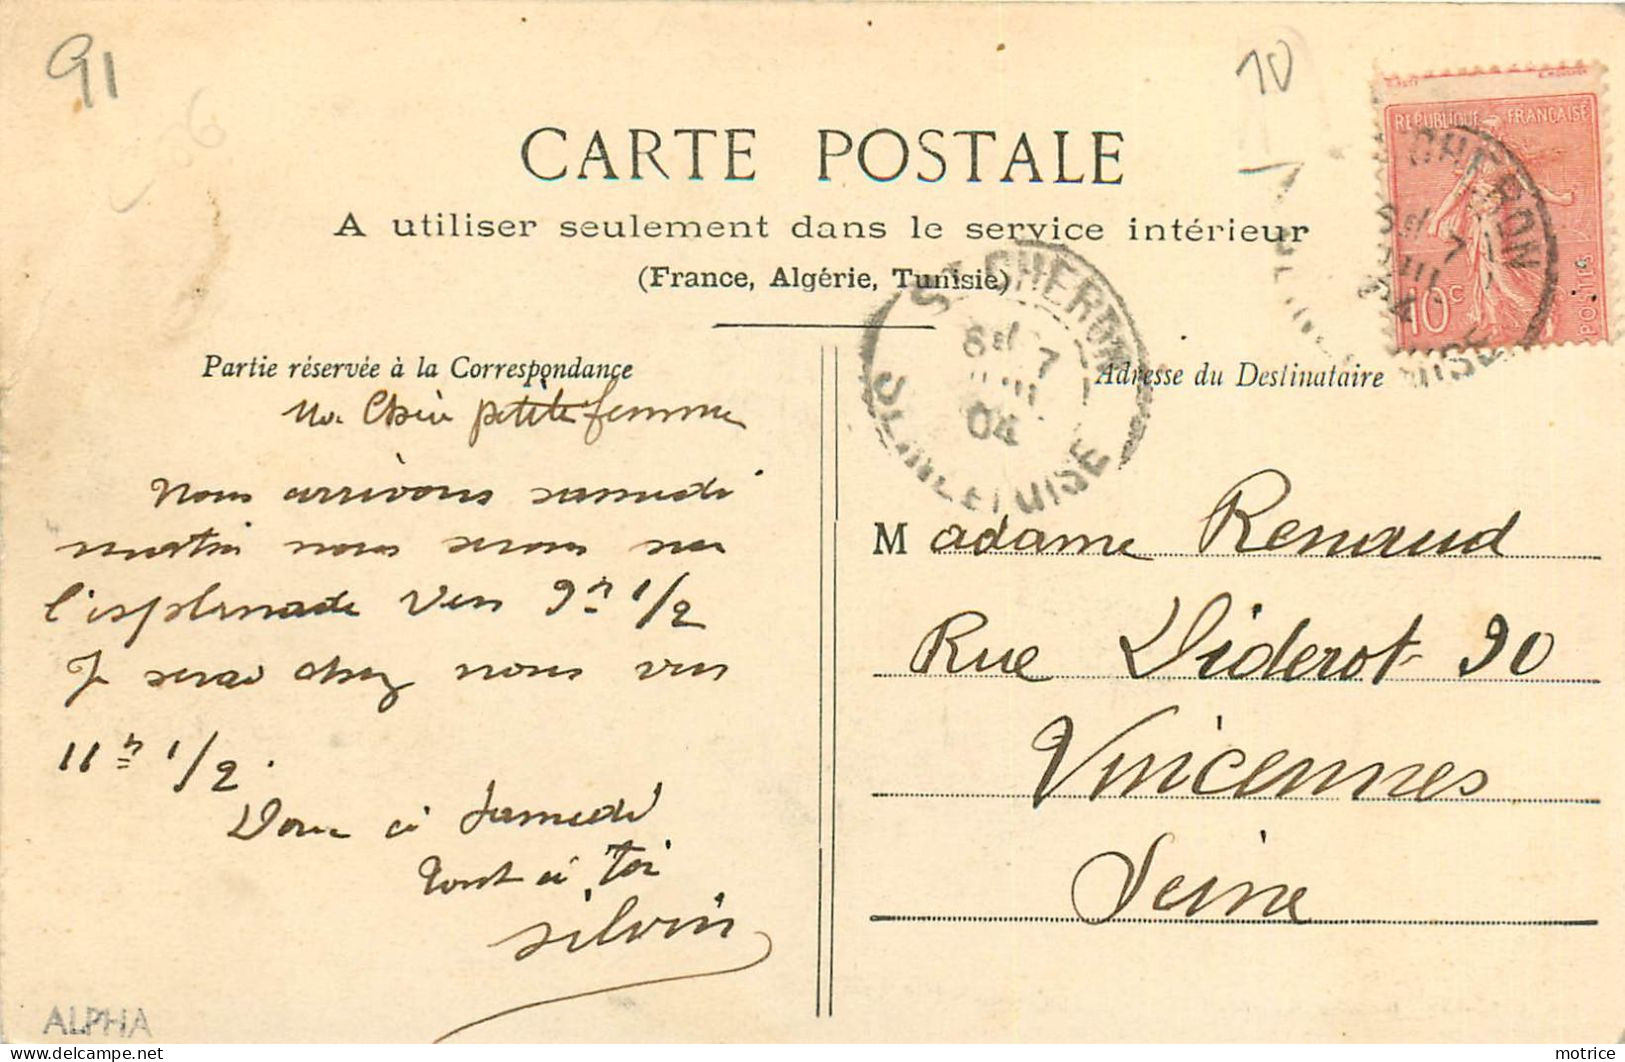 91
10
CARTE POSTALE
A utiliser seulement dans le service intérieur
(France, Algérie, Tunisie)
REPUBLIQUE FRANÇAISE
10c
POSTES
ST CHERON
8H
7
04
SEINE ET OISE
Partie réservée à la Correspondance
Adresse du Destinataire
Ma Chère petite femme
Nous arrivons samedi
matin nous serons sur
l'esplanade vers 9h 1/2
Je serai chez nous vers
11h 1/2.
Donc à Samedi
Tout à Toi
Silvin
Madame Renaud
Rue Diderot 90
Vincennes
Seine
ALPHA
delcampe.net
motrice